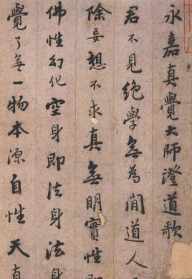 永嘉真覺大師證道歌
君不見絕學無為閒道人
除妄想不求真無明實性即
佛性幻化空身即法身法身
覺了無一物本源自性天真